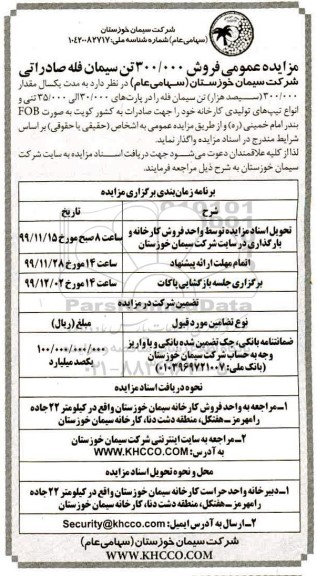 شرکت سیمان خوزستان
(سهامی عام) شماره شناسه ملی: ۱۰۴۲۰۰۸۲۷۱۷
مزایده عمومی فروش ۳۰۰/۰۰۰ تن سیمان فله صادراتی
شرکت سیمان خوزستان (سهامی عام) در نظر دارد به مدت یکسال مقدار
۳۰۰/۰۰۰ (سیصد هزار) تن سیمان فله را در پارت‌های ۳۰/۰۰۰ الی ۳۵/۰۰۰ تنی و
انواع تیپ‌های تولیدی کارخانه خود را جهت صادرات به کشور کویت به صورت FOB
بندر امام خمینی (ره) و از طریق مزایده عمومی به اشخاص (حقیقی یا حقوقی) بر اساس
شرایط مندرج در اسناد مزایده واگذار نماید.
لذا از کلیه علاقمندان دعوت می‌شود جهت دریافت اسناد مزایده به سایت شرکت
سیمان خوزستان به شرح ذیل مراجعه فرمایند.
برنامه زمان‌بندی برگزاری مزایده
شرح
تاریخ
تحویل اسناد مزایده توسط واحد فروش کارخانه و
بارگذاری در سایت شرکت سیمان خوزستان
ساعت ۸ صبح مورخ ۹۹/۱۱/۱۵
اتمام مهلت ارائه پیشنهاد
ساعت ۱۴ مورخ ۹۹/۱۱/۲۸
برگزاری جلسه بازگشایی پاکات
ساعت ۱۴ مورخ ۹۹/۱۲/۰۲
تضمین شرکت در مزایده
نوع تضامین مورد قبول
مبلغ (ریال)
ضمانتنامه بانکی، چک تضمین شده بانکی و یا واریز
وجه به حساب شرکت سیمان خوزستان
(بانک ملی: ۰۱۰۲۹۶۹۷۲۱۰۰۷)
۱۰۰/۰۰۰/۰۰۰/۰۰۰
یکصد میلیارد
نحوه دریافت اسناد مزایده
۱- مراجعه به واحد فروش کارخانه سیمان خوزستان واقع در کیلومتر ۲۲ جاده
رامهرمز - هفتکل، منطقه دشت دنا، کارخانه سیمان خوزستان
۲- مراجعه به سایت اینترنتی شرکت سیمان خوزستان
به آدرس: WWW.KHCCO.COM
محل و نحوه تحویل اسناد مزایده
۱- دبیرخانه واحد حراست کارخانه سیمان خوزستان واقع در کیلومتر ۲۲ جاده
رامهرمز - هفتکل، منطقه دشت دنا، کارخانه سیمان خوزستان
۲- ارسال به آدرس ایمیل: Security@khcco.com
شرکت سیمان خوزستان (سهامی عام)
WWW.KHCCO.COM